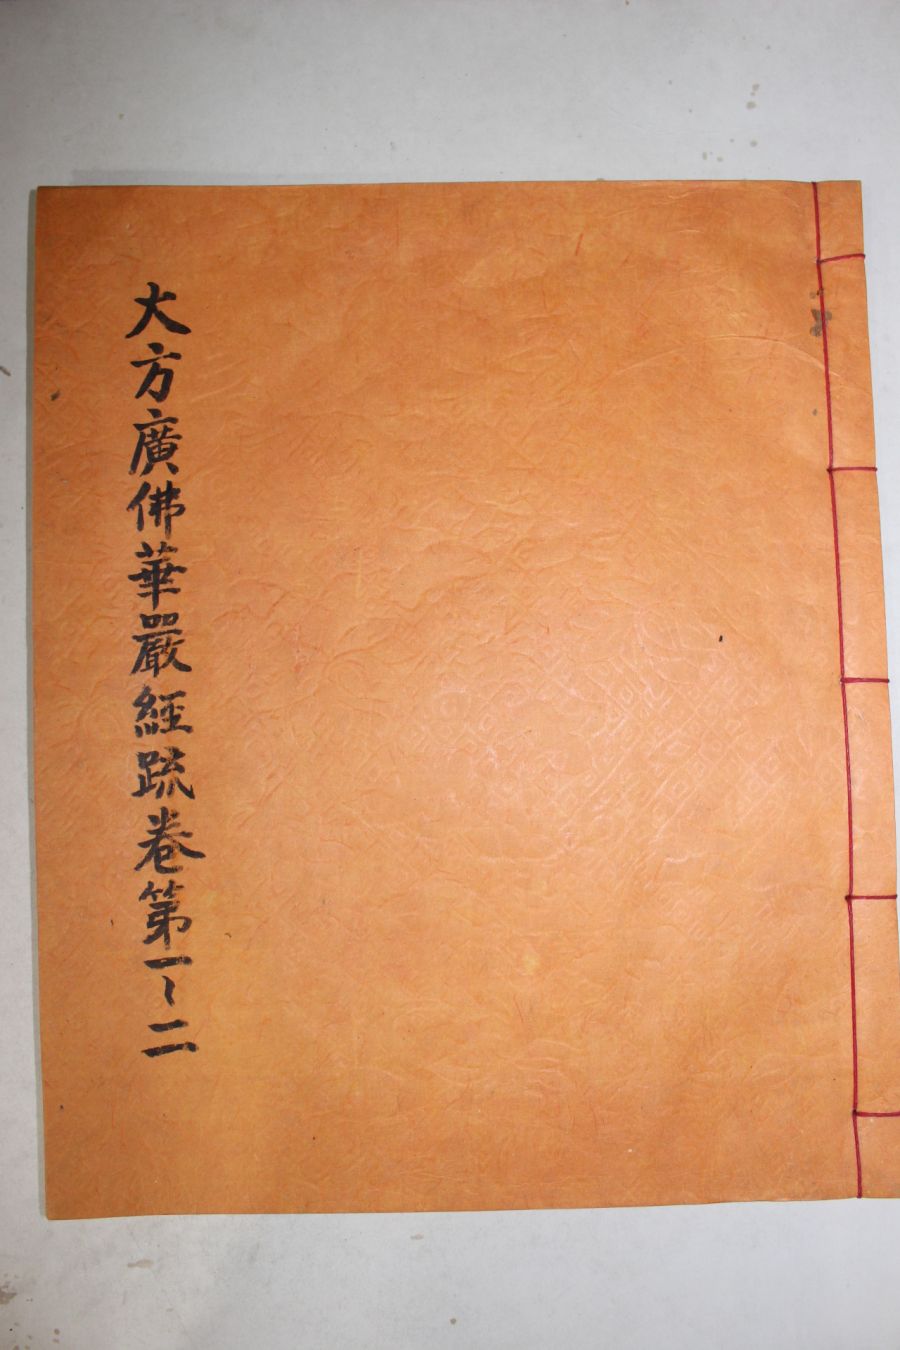 大方廣佛華嚴經䟽卷第一~二